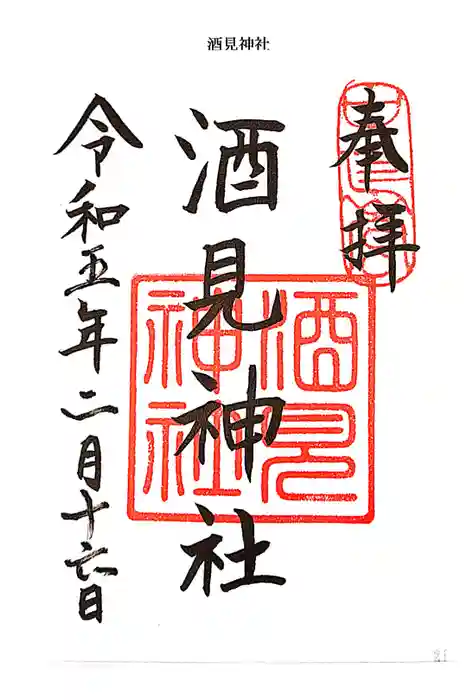 酒見神社
奉拝
酒見神社
酒見神社
令和五年二月十六日
21